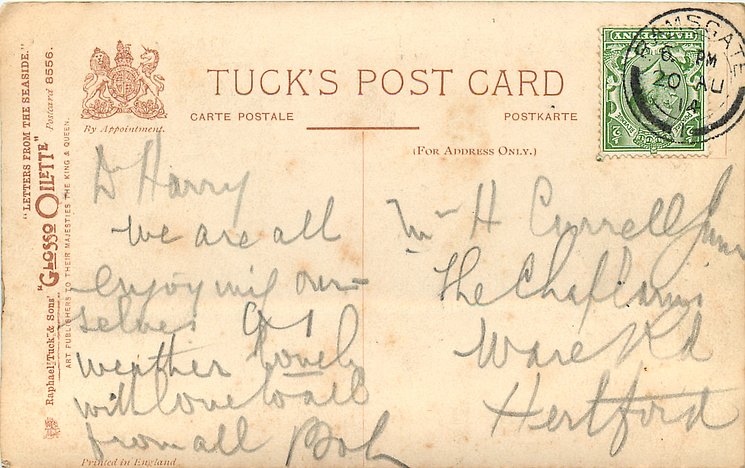 "LETTERS FROM THE SEASIDE."
Raphael Tuck & Sons' "GLOSSO OILETTE" Postcard 8556.
ART PUBLISHERS TO THEIR MAJESTIES THE KING & QUEEN.
By Appointment.
TUCK'S POST CARD
CARTE POSTALE
POSTKARTE
(FOR ADDRESS ONLY.)
RAMSGATE
6 PM
20 AU
14
HALFPENNY
D Harry
We are all
enjoying our-
selves A1
weather lovely
with love to all
from all Bob
Mr H Currell Junr
The
Ware Rd
Hertford
Printed in England